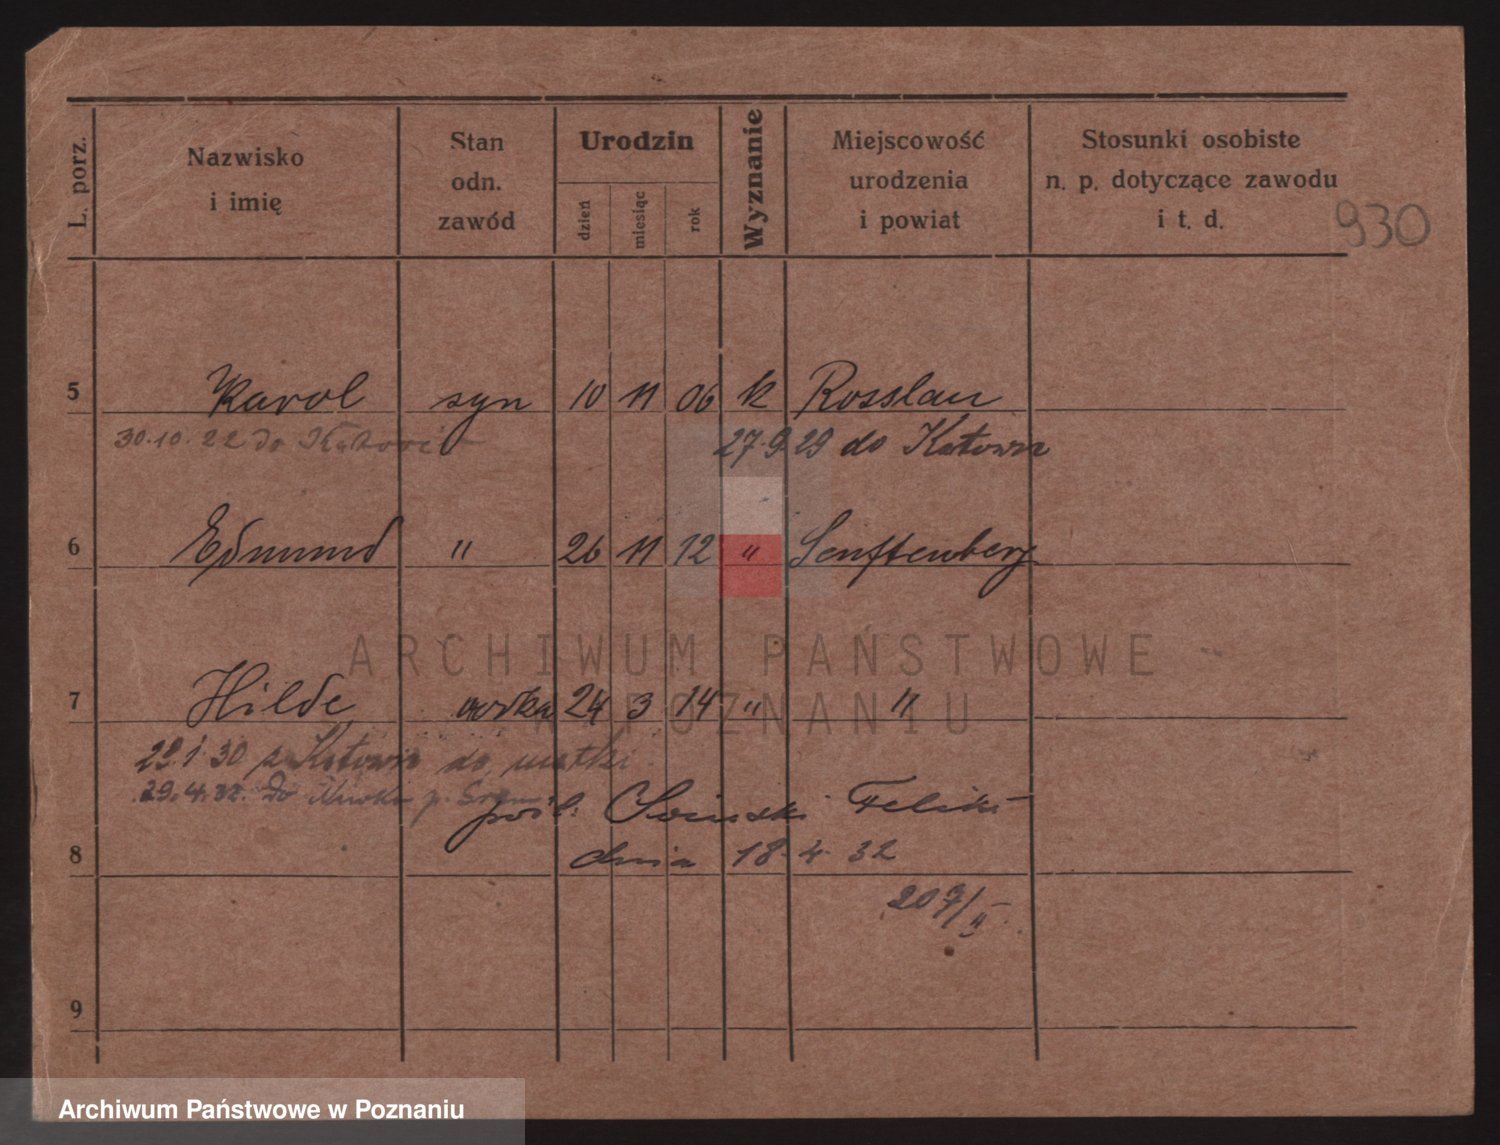 L. porz.
Nazwisko
i imię
Stan
odn.
zawód
Urodzin
dzień
miesiąc
rok
Wyznanie
Miejscowość
urodzenia
i powiat
Stosunki osobiste
n. p. dotyczące zawodu
i t. d.
930
5 Karol syn 10 11 06 k Rosslau
30.10.22 do
27.9.29 do Katowic
6 Edmund " 26 11 12 " Senftenberg
ARCHIWUM PAŃSTWOWE
W POZNANIU
7 Hilde córka 24 3 14 " "
1 30 z Katowic do matki
29.4.32. do
pośl. Feliks
8 dnia 18.4.32
207/II
9
Archiwum Państwowe w Poznaniu